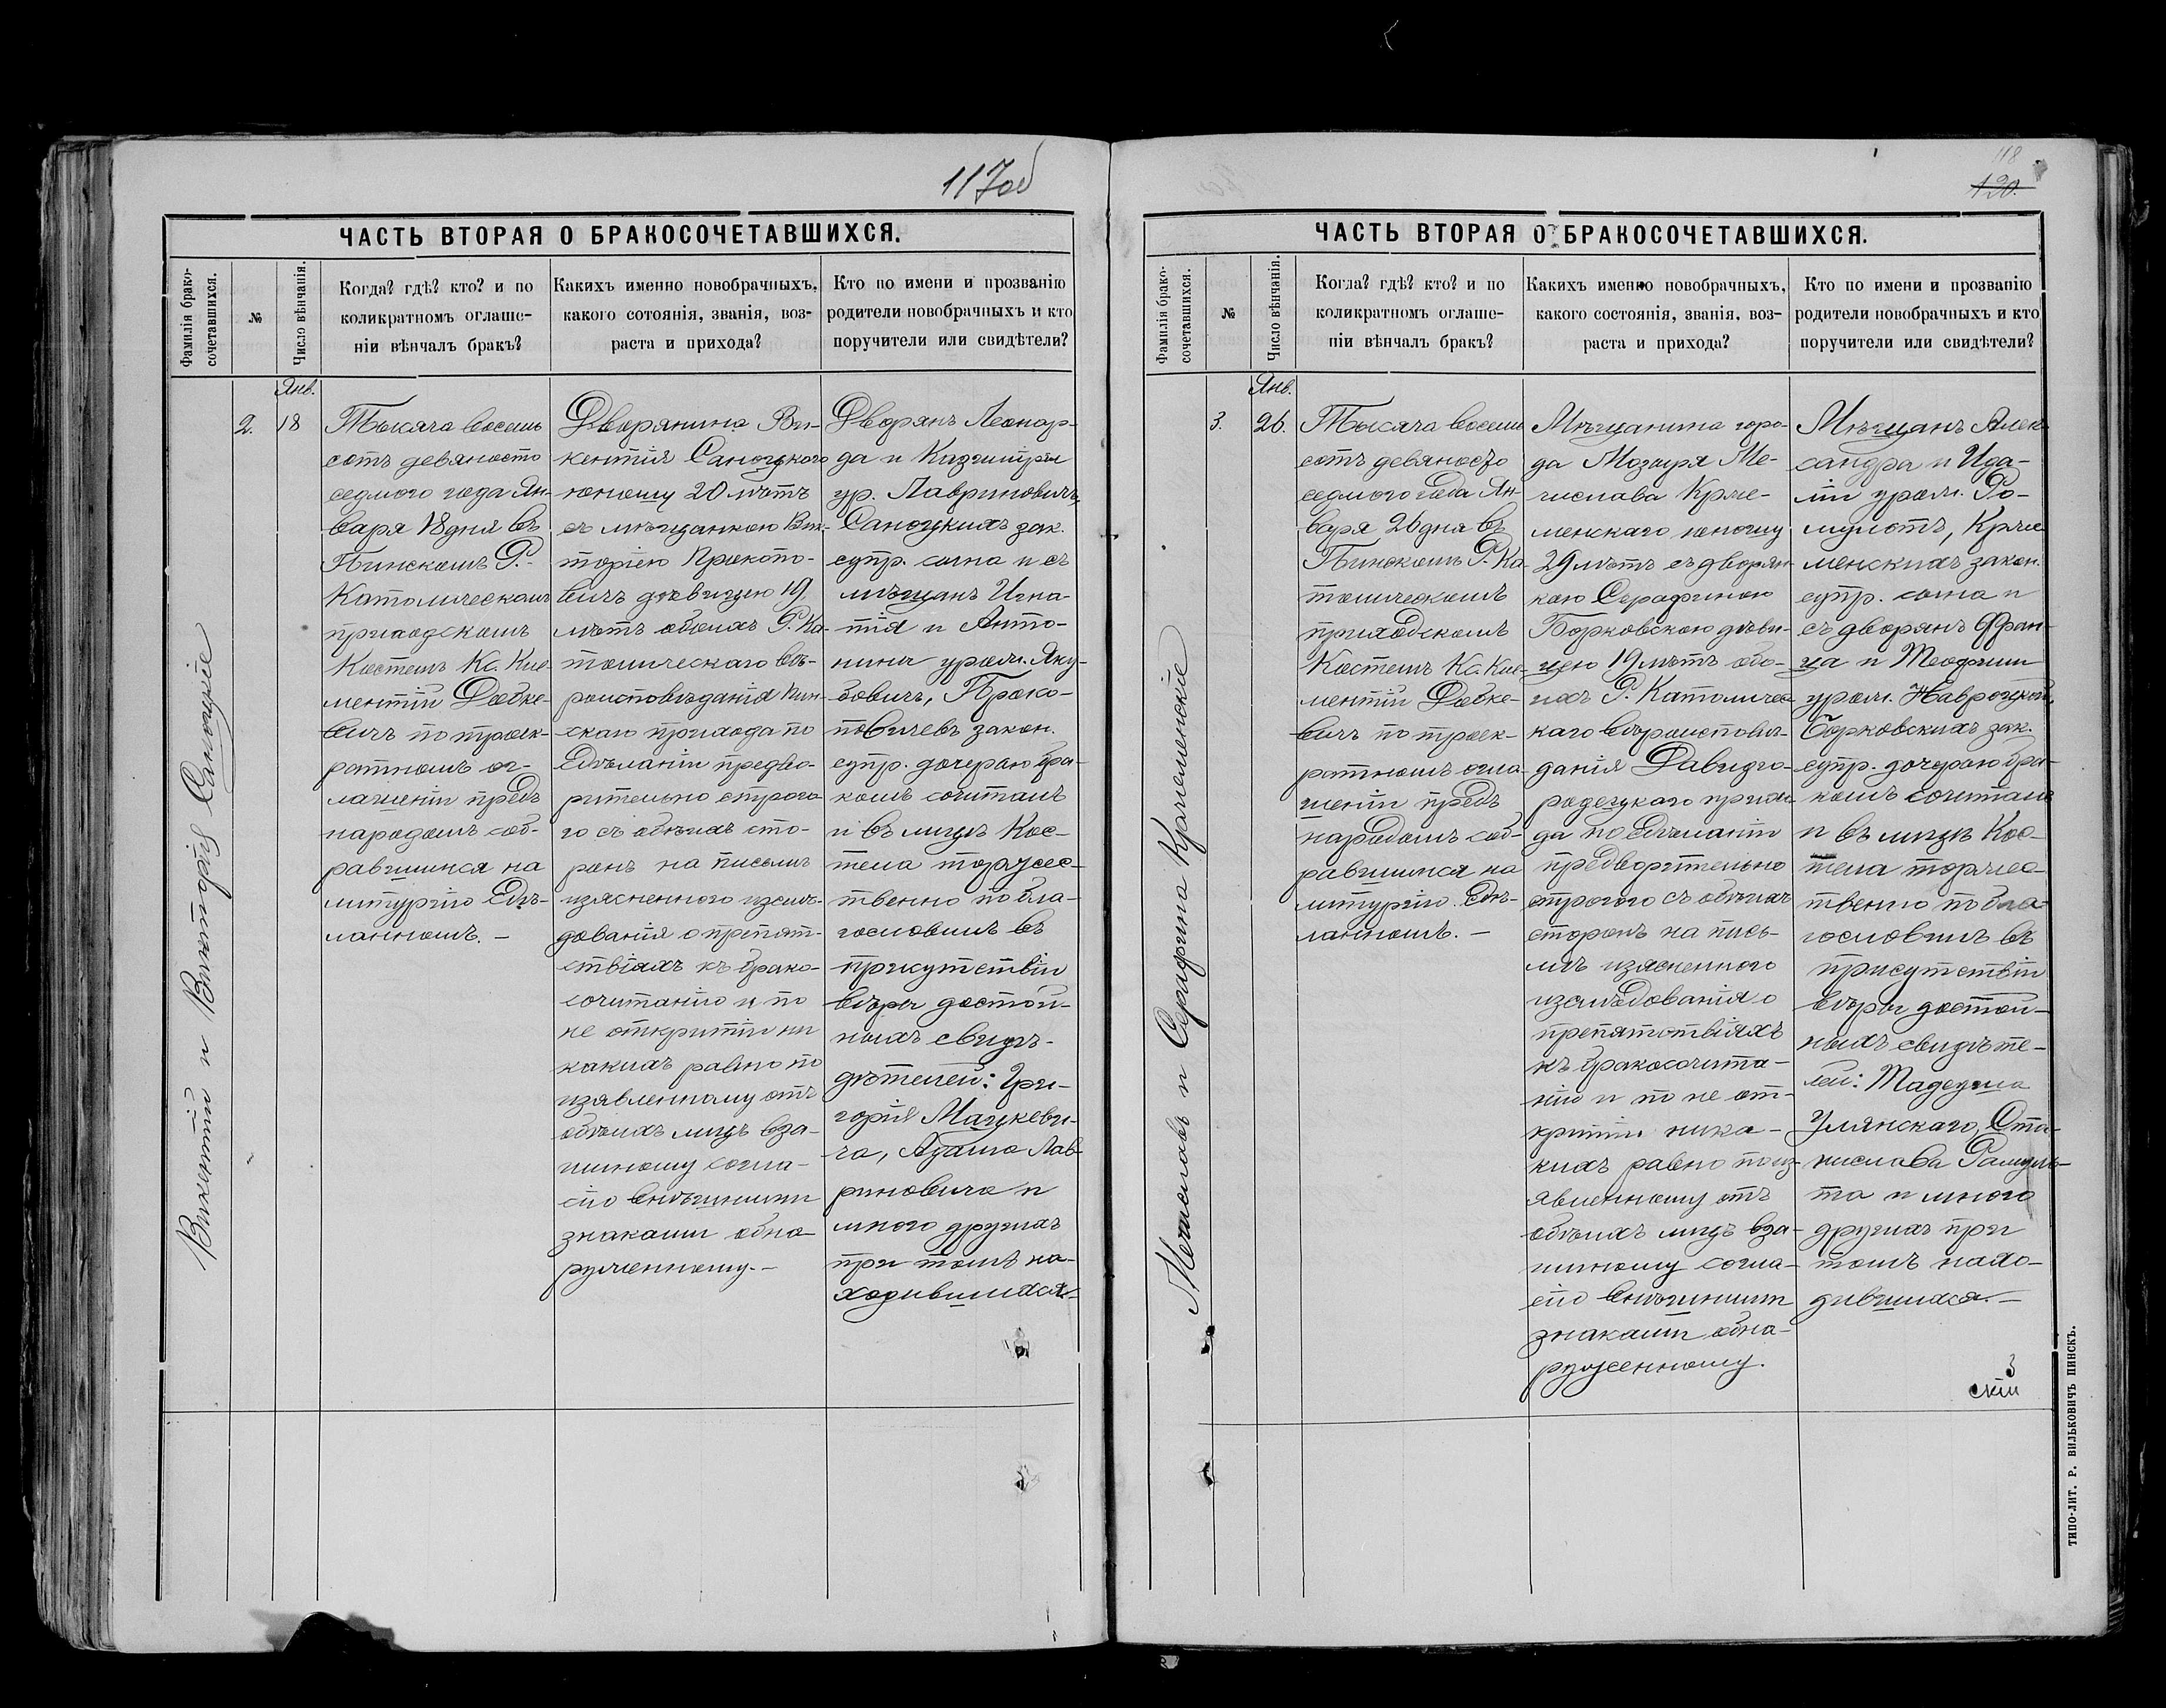 117об
ЧАСТЬ ВТОРАЯ О БРАКОСОЧЕТАВШИХСЯ.
Фамилія брако-
сочетавшихся.
№
Число вѣнчанія.
Когда? гдѣ? кто? и по
коликратномъ оглаше-
ніи вѣнчалъ бракъ?
Какихъ именно новобрачныхъ,
какого сотоянія, званія, воз-
раста и прихода?
Кто по имени и прозванію
родители новобрачныхъ и кто
поручители или свидѣтели?
Викентій и Викторія Саноцкіе
2.
Янв.
18
Тысяча восемь
сотъ девяносто
седмого года Ян-
варя 18 дня въ
Пинскомъ Р.-
Католическомъ
приходскомъ
Костелѣ Кс. Кле-
ментій Добке-
вичъ по троек-
ратномъ ог-
лашеніи предъ
народомъ соб-
равшимся на
литургію сдѣ-
ланномъ. —
Дворянина Ви-
кентія Саноцкого
юношу 20 лѣтъ
съ мѣщанкою Вик-
торіею Прокопо-
вичъ дѣвицею 19
лѣтъ обоихъ Р. Ка-
толическаго вѣ-
роисповѣданія Пин-
скаго прихода по
сдѣланіи предва-
рительно строго-
го съ обѣихъ сто-
ронъ на письмѣ
изясненного изслѣ-
дованія о препят-
ствіяхъ къ брако-
сочитанію и по
не открытіи ни
какихъ равно по
изявленному отъ
обѣихъ лицъ вза-
имному согла-
сію внѣшними
знаками обна-
руженному. —
Дворянъ Леонар-
да и Казимиры
ур. Лавриновичъ,
Саноцкихъ зак.
супр. сына и съ
мѣщанъ Игна-
тія и Анто-
нины урожд. Яку-
бовичъ, Проко-
повичевъ закон.
супр. дочерью бра-
комъ сочиталъ
и въ лицѣ Кос-
тела торжес-
твенно побла-
гословилъ въ
присутствіи
вѣры достой-
ныхъ свидѣ-
дѣтелей: Гри-
горія Мацкеви-
ча, Адама Лав-
риновича и
много другихъ
при томъ на-
ходившихся.
118
120.
ЧАСТЬ ВТОРАЯ О БРАКОСОЧЕТАВШИХСЯ.
Фамилія брако-
сочетавшихся.
№
Число вѣнчанія.
Когда? гдѣ? кто? и по
коликратномъ оглаше-
ніи вѣнчалъ бракъ?
Какихъ именно новобрачныхъ,
какого состоянія, званія, воз-
раста и прихода?
Кто по имени и прозванію
родители новобрачныхъ и кто
поручители или свидѣтели?
Мечиславъ и Серафина Кржеменскіе
3.
Янв.
26.
Тысяча восемь
сотъ девяносто
седмого года Ян-
варя 26 дня въ
Пинскомъ Р. Ка-
толическомъ
приходскомъ
Костелѣ Кс. Кле-
ментій Добке-
вичъ по троек-
ратномъ огла-
шеніи предъ
народомъ соб-
равшимся на
литургію сдѣ-
ланномъ. —
Мѣщанина горо-
да Мозыря Ме-
числава Крже-
менскаго юношу
29 лѣтъ съ дворян-
кою Серафиною
Борковскою дѣви-
цею 19 лѣтъ обо-
ихъ Р. Католичес-
каго вѣроисповѣ-
данія Давидго-
родецкаго прихо-
да по сдѣланіи
предворительно
строгого съ обѣихъ
сторонъ на пись-
мѣ изясненного
изслѣдованія о
препятствіяхъ
къ бракосочита-
нію и по не от-
крытіи ника-
кихъ равно по из-
явленному отъ
обѣихъ лицъ вза-
имному согла-
сію внѣшними
знаками обна-
руженному.
Мѣщанъ Алек-
сандра и Ида-
ліи урожд. Ро-
мультъ, Крже-
менскихъ закон.
супр. сына и
съ дворянъ Фран-
ца и Теофили
урожд. Навроцкой,
Борковскихъ зак.
супр. дочерью бра-
комъ сочиталъ
и въ лицѣ Кос-
тела торжес-
твенно побла-
гословилъ въ
присутствіи
вѣры достой-
ныхъ свидѣте-
лей: Тадеуша
Улянскаго, Ста-
нислава Рамуль-
та и много
другихъ при
томъ нахо-
дившихся. —
3
скій
ТИПО-ЛИТ. Р. ВИЛЬКОВИЧЪ ПИНСКЪ.